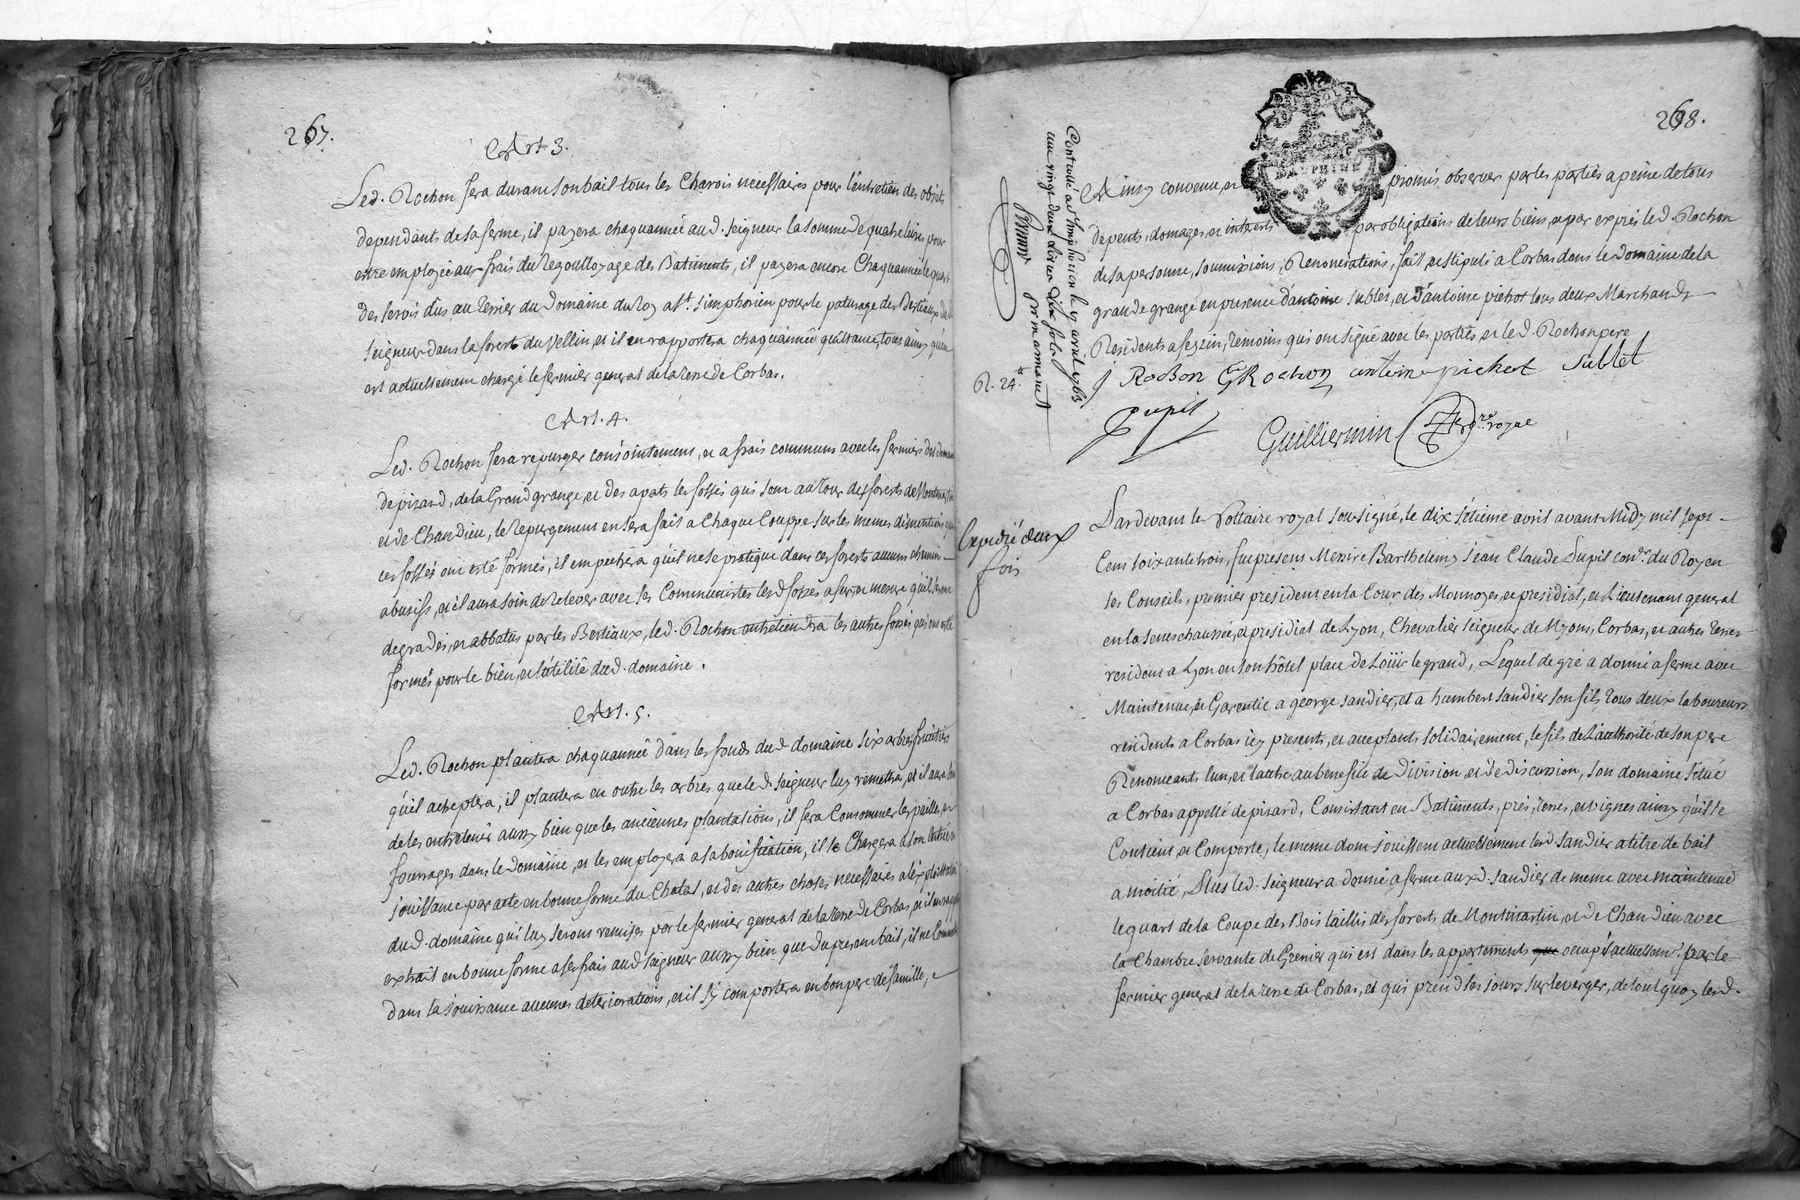 267.
Art 3.
Led. Rochon fera durant son bail tous les Charois necessaires pour l'entretien des objets
dependants de sa ferme, il payera chaquannée aud. seigneur la somme de quatre livres pour
estre employée aux frais du Regouttoyage des Batiments, il payera encore Chaquannée le quart
des servis dus au Terrier du Domaine du Roy a St. simphorien pour le paturage des Bestiaux dud.
seigneur dans la forest du vellin, et il en rapportera chaquannée quittance, tous ainsy qu'en
est actuellement chargé le fermier general de la terre de Corbas.
Art. 4.
Led. Rochon fera repurger conjointement, et a frais communs avec les fermiers des domaines
de pisard, de la Grand grange, et des apats les fossés qui sont au tour des forests de Montmartin
et de Chandieu, le repurgement en sera fait a Chaque Couppe sur les memes dimentions que
ces fossés ont esté formés, il empechera qu'il ne se pratique dans ces forests aucuns chemins
abusifs, et il aura soin de relever avec ses Communistes lesd fossés a fur et mesure qu'il seront
degradés, et abbatus par les Bestiaux, led. Rochon entretiendra les autres fossés qui ont esté
formés pour le bien, et l'utilité dud. domaine.
Art. 5.
Led. Rochon plantera chaquannée dans les fonds dud domaine six arbres fruitiers
qu'il acheptera, il plantera en outre les arbres que led. seigneur luy remettra, et il aura soin
de les entretenir aussy bien que les anciennes plantations, il fera Consommer les pailles, et
fourrages dans le domaine, et les employera a sa bonification, il se Chargera a son entrée en
jouissance par acte en bonne forme du Chetal, et des autres choses necessaires a l'exploitation
dud. domaine qui luy seront remises par le fermier general de la terre de Corbas, et il en
extrait en bonne forme a ses frais aud seigneur aussy bien que du present bail, il ne Commettra
dans la jouissance aucunes deteriorations, et il s'y comportera en bon pere de famille,
268.
Controllé a St simphorien le 17 avril 1763
vingt deux livres
DAUPHINE
Ainsy convenu, et promis observer par les parties a peine de tous
depents, domages, et interets par obligations de leurs biens, et par exprés led. Rochon
de sa personne, soumissions, Renonciations, fait, et stipulé a Corbas dans le domaine de la
grande grange en presence d'antoine sublet, et d'antoine pichot tous deux Marchands
Residents a feyzin, temoins qui ont signé avec les parties, et led. Rochon pere
R. 24
J Rochon G Rochon antoine pichat Sublet
Pupil
Guilliermin nre royal
Expedié deux
fois
Pardevant le Nottaire royal sousigné, le dix setieme avril avant Midy mil sept
Cent soixante trois, fut present Messire Barthelemy Jean Claude Pupil coner. du Roy en
ses Conseils, premier president en la Cour des Monnoyes, et presidial, et Lieutenant general
en la seneschaussée, et presidial de Lyon, Chevalier seigneur de Myons, Corbas, et autres terres
resident a Lyon en son hôtel place de Loüis le grand, Lequel de gré a donné a ferme avec
Maintenue, et Garentie a george sandier, et a humbert sandier son fils tous deux laboureurs
residents a Corbas icy presents, et acceptants solidairement, le fils de L'authorité de son pere
Renonceants lun, et lautre au benefice de division, et de discussion, son domaine situé
a Corbas appellé de pisard, Consistant en Batiments, prés, terres, et vignes ainsy qu'il se
Contient, et Comporte, le meme dont jouissent actuellement lesd sandier a titre de bail
a moitié, Plus led. seigneur a donné a ferme auxd. sandier de meme avec maintenue
le quart de la Coupe des Bois taillis des forests de Montmartin, et de Chandieu avec
la Chambre servante de Grenier qui est dans les appartements occupés actuellemt. par le
fermier general de la terre de Corbas, et qui prend ses jours sur le verger, de tout quoy lesd.